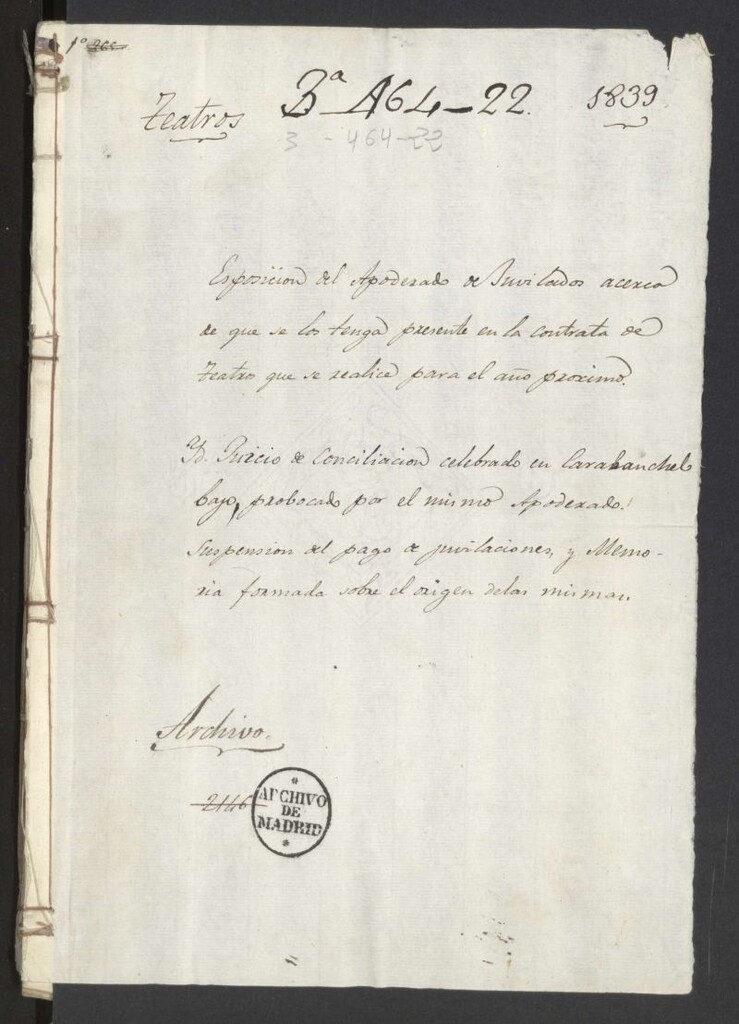 1º 266
Teatros 3ª 464-22. 1839
3 - 464-22
Esposicion del Apoderado de Juvilados acerca
de que se los tenga presente en la contrata de
Teatro que se realice para el año proximo.
Yd. Juicio de Conciliacion celebrado en Carabanchel
bajo, probocado por el mismo Apoderado.
Suspension del pago de juvilaciones, y Memo-
ria formada sobre el origen delas mismas.
Archivo.
2146
ARCHIVO
DE
MADRID